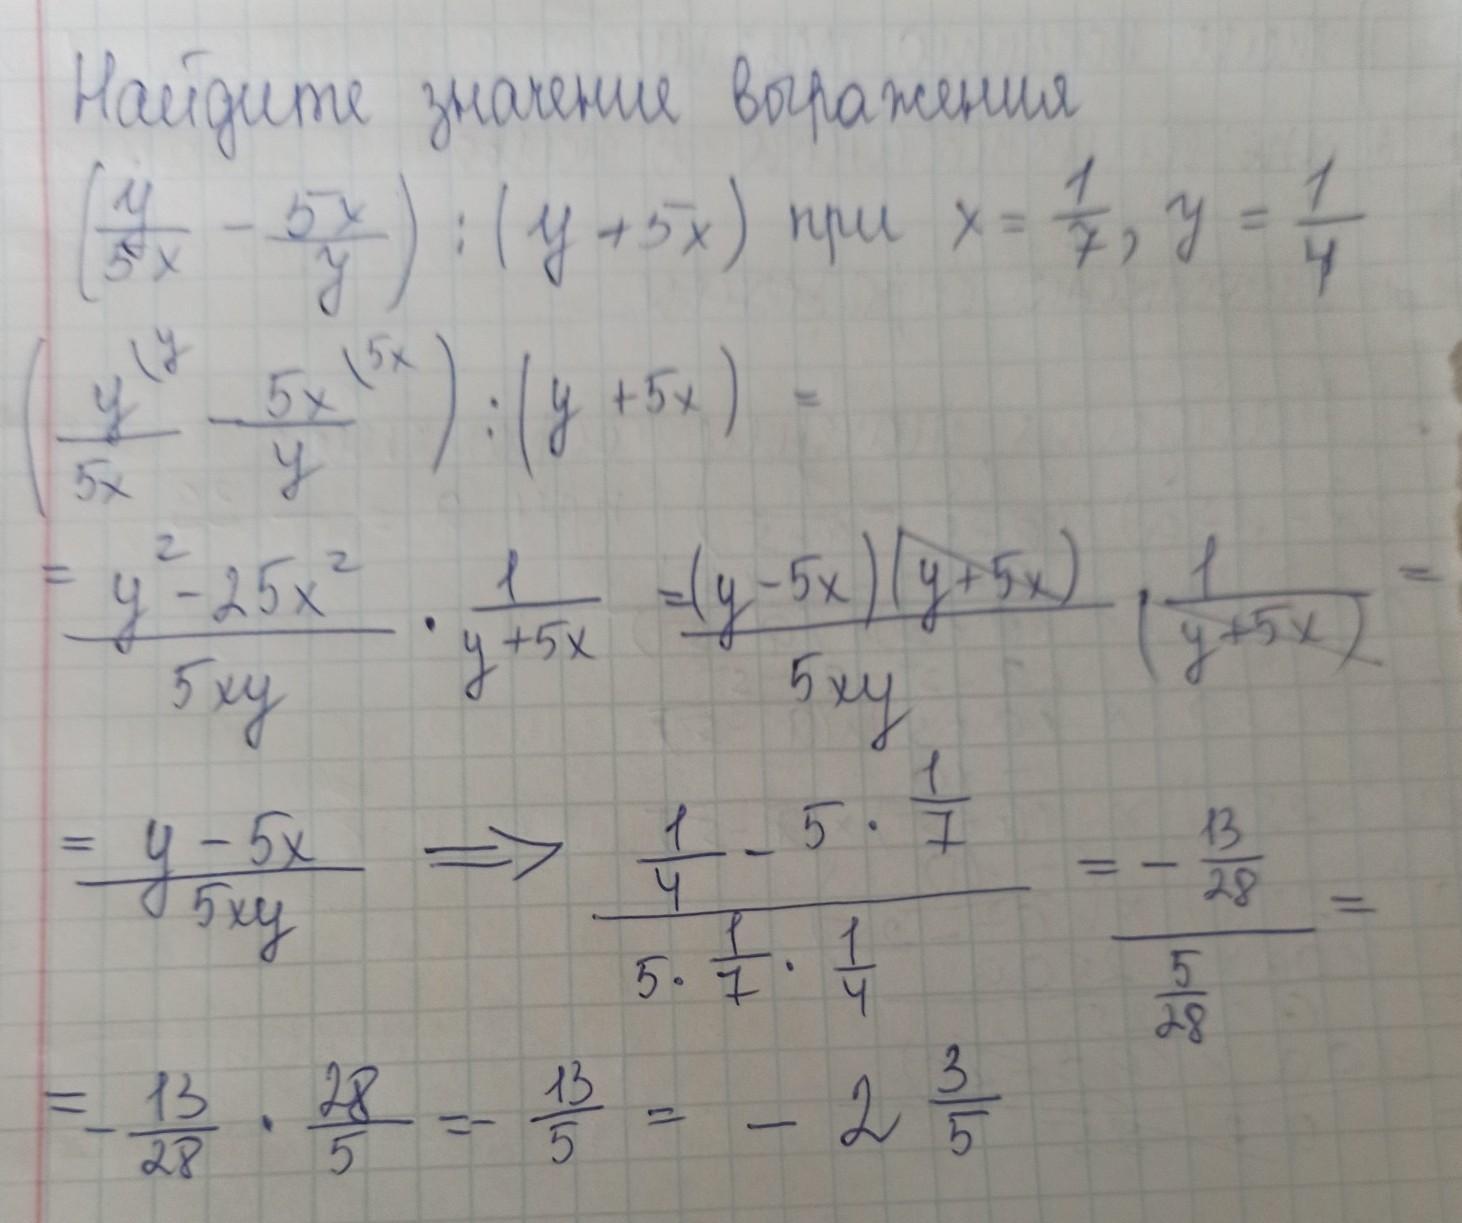 Найдите значение выражения
(y/5x - 5x/y) : (y + 5x) при x = 1/7, y = 1/4
(y/5x^(y - 5x/y^(5x) : (y + 5x) =
= (y² - 25x²)/5xy · 1/(y+5x) = (y - 5x)(y + 5x)/5xy · 1/(y + 5x) =
= (y - 5x)/5xy ⟹ (1/4 - 5 · 1/7)/(5 · 1/7 · 1/4) = (- 13/28)/(5/28) =
= - 13/28 · 28/5 = - 13/5 = - 2 3/5